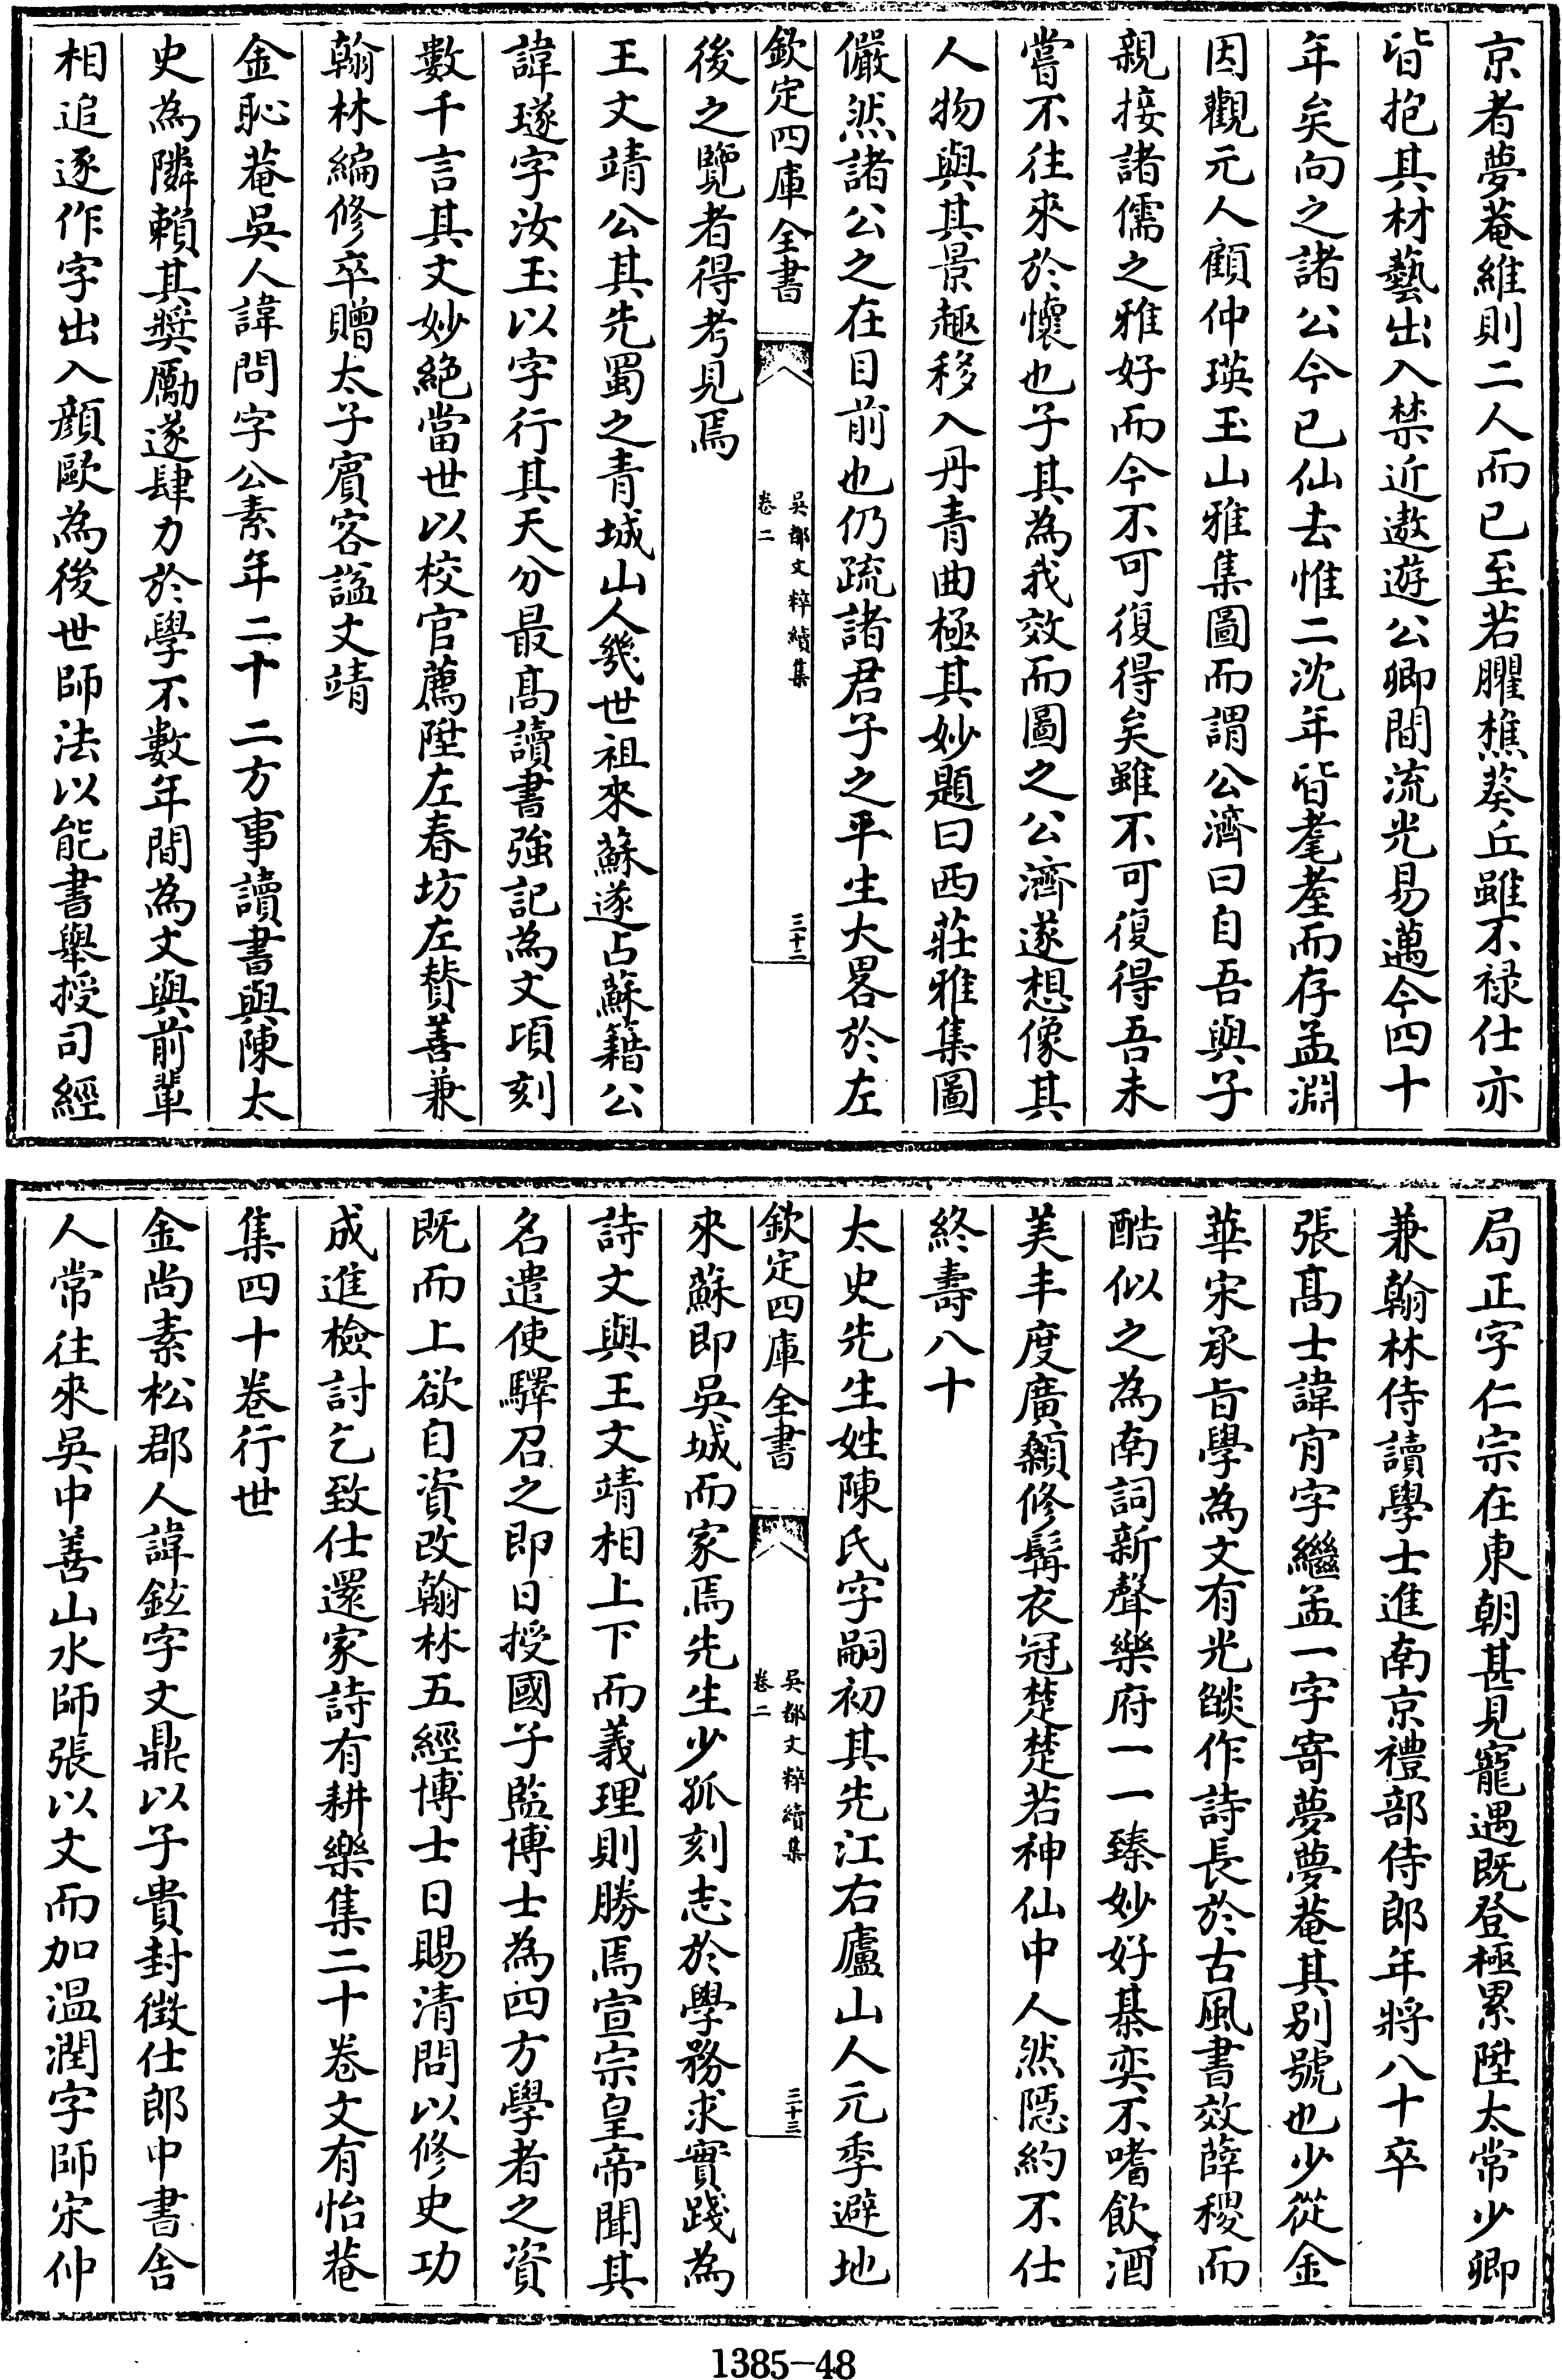 京者夢菴維則二人而已至若臞樵葵丘雖不禄仕亦
皆抱其材藝出入禁近遨遊公卿間流光易邁今四十
年矣向之諸公今已仙去惟二沈年皆耄耋而存孟淵
因觀元人顧仲瑛玉山雅集圖而謂公濟曰自吾與子
親接諸儒之雅好而今不可復得矣雖不可復得吾未
嘗不往來於懷也子其為我效而圖之公濟遂想像其
人物與其景趣移入丹青曲極其妙題曰西莊雅集圖
儼然諸公之在目前也仍疏諸君子之平生大畧於左
欽定四庫全書
吳都文粹續集
卷二
三十二
後之覽者得考見焉
王文靖公其先蜀之青城山人幾世祖來蘇遂占蘇籍公
諱璲字汝玉以字行其天分最髙讀書強記為文頃刻
數千言其文妙絶當世以校官薦陞左春坊左賛善兼
翰林編修卒贈太子賓客謚文靖
金恥菴吳人諱問字公素年二十二方事讀書與陳太
史為隣頼其奬厲遂肆力於學不數年間為文與前軰
相追逐作字出入顔歐為後世師法以能書舉授司經
局正字仁宗在東朝甚見寵遇既登極累陞太常少卿
兼翰林侍讀學士進南京禮部侍郎年將八十卒
張髙士諱肎字繼孟一字寄夢夢菴其别號也少從金
華宋承旨學為文有光燄作詩長於古風書效薛稷而
酷似之為南詞新聲樂府一一臻妙好棊奕不嗜飲酒
美丰度廣顙修髯衣冠楚楚若神仙中人然隠約不仕
終壽八十
太史先生姓陳氏字嗣初其先江右廬山人元季避地
欽定四庫全書
吳都文粹續集
卷二
三十三
來蘇即吳城而家焉先生少孤刻志於學務求實踐為
詩文與王文靖相上下而義理則勝焉宣宗皇帝聞其
名遣使驛召之即日授國子監博士為四方學者之資
既而上欲自資改翰林五經博士日賜清問以修史功
成進檢討乞致仕還家詩有耕樂集二十卷文有怡菴
集四十卷行世
金尚素松郡人諱鉉字文鼎以子貴封徵仕郎中書舎
人常往來吳中善山水師張以文而加温潤字師宋仲
1385-48